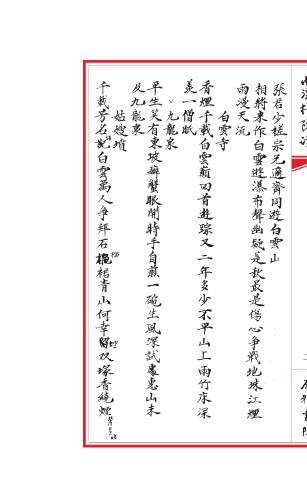 張君少槎崇兄適齊同遊白雲山
相將來作白雲遊瀑布聲幽疑是秋最是傷心爭戰地珠江煙
雨漫天流
白雲寺
香煙千載白雲巔回首遊踪又二年多少不平山上雨竹床深
羨一僧眠
九龍泉
平生笑有東坡癖蟹眼開時手自煎一碗生風深試處惠山未
及九龍泉
姑嫂墳
千載芳名說白雲萬人爭拜石裙青山何幸留双塚香繞煙